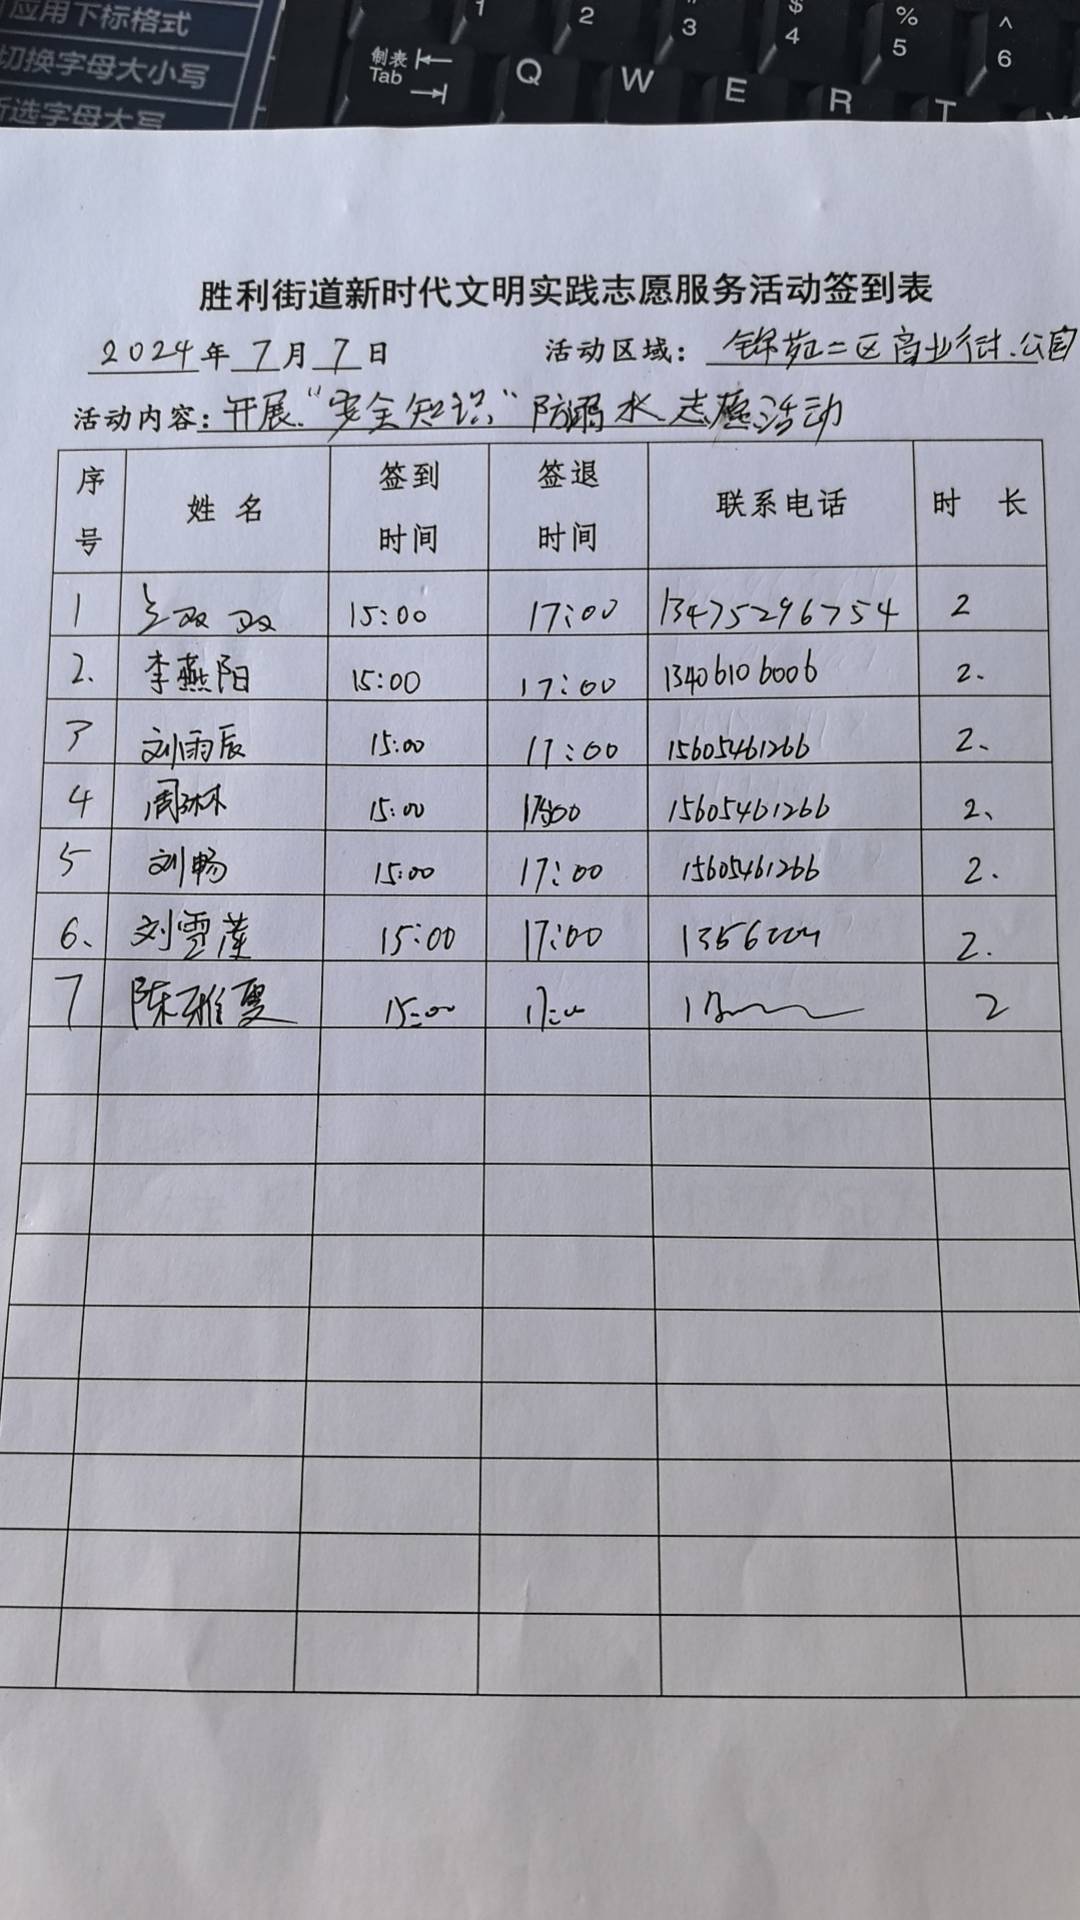 应用下标格式
切换字母大小写
所选字母大写
制表
Tab
1 2 3 $ 4 % 5 ^ 6
Q W E R T
胜利街道新时代文明实践志愿服务活动签到表
2024年7月7日 活动区域：锦苑二区商业街、公园
活动内容：开展“安全知识”防溺水志愿活动
序号 姓名 签到时间 签退时间 联系电话 时长
1 双双 15:00 17:00 13475296754 2
2. 李燕阳 15:00 17:00 13406106006 2.
3 刘雨辰 15:00 17:00 15605461266 2、
4 周琳 15:00 17:00 15605461266 2、
5 刘畅 15:00 17:00 15605461266 2.
6、 刘雪莲 15:00 17:00 2.
7 陈雅雯 15:00 17:00 2